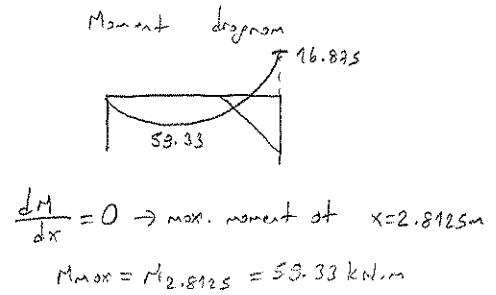 Moment diagram
16.875
59.33
dM/dx = 0 → max. moment at x=2.8125m
Mmax = M2.8125 = 59.33 kN.m